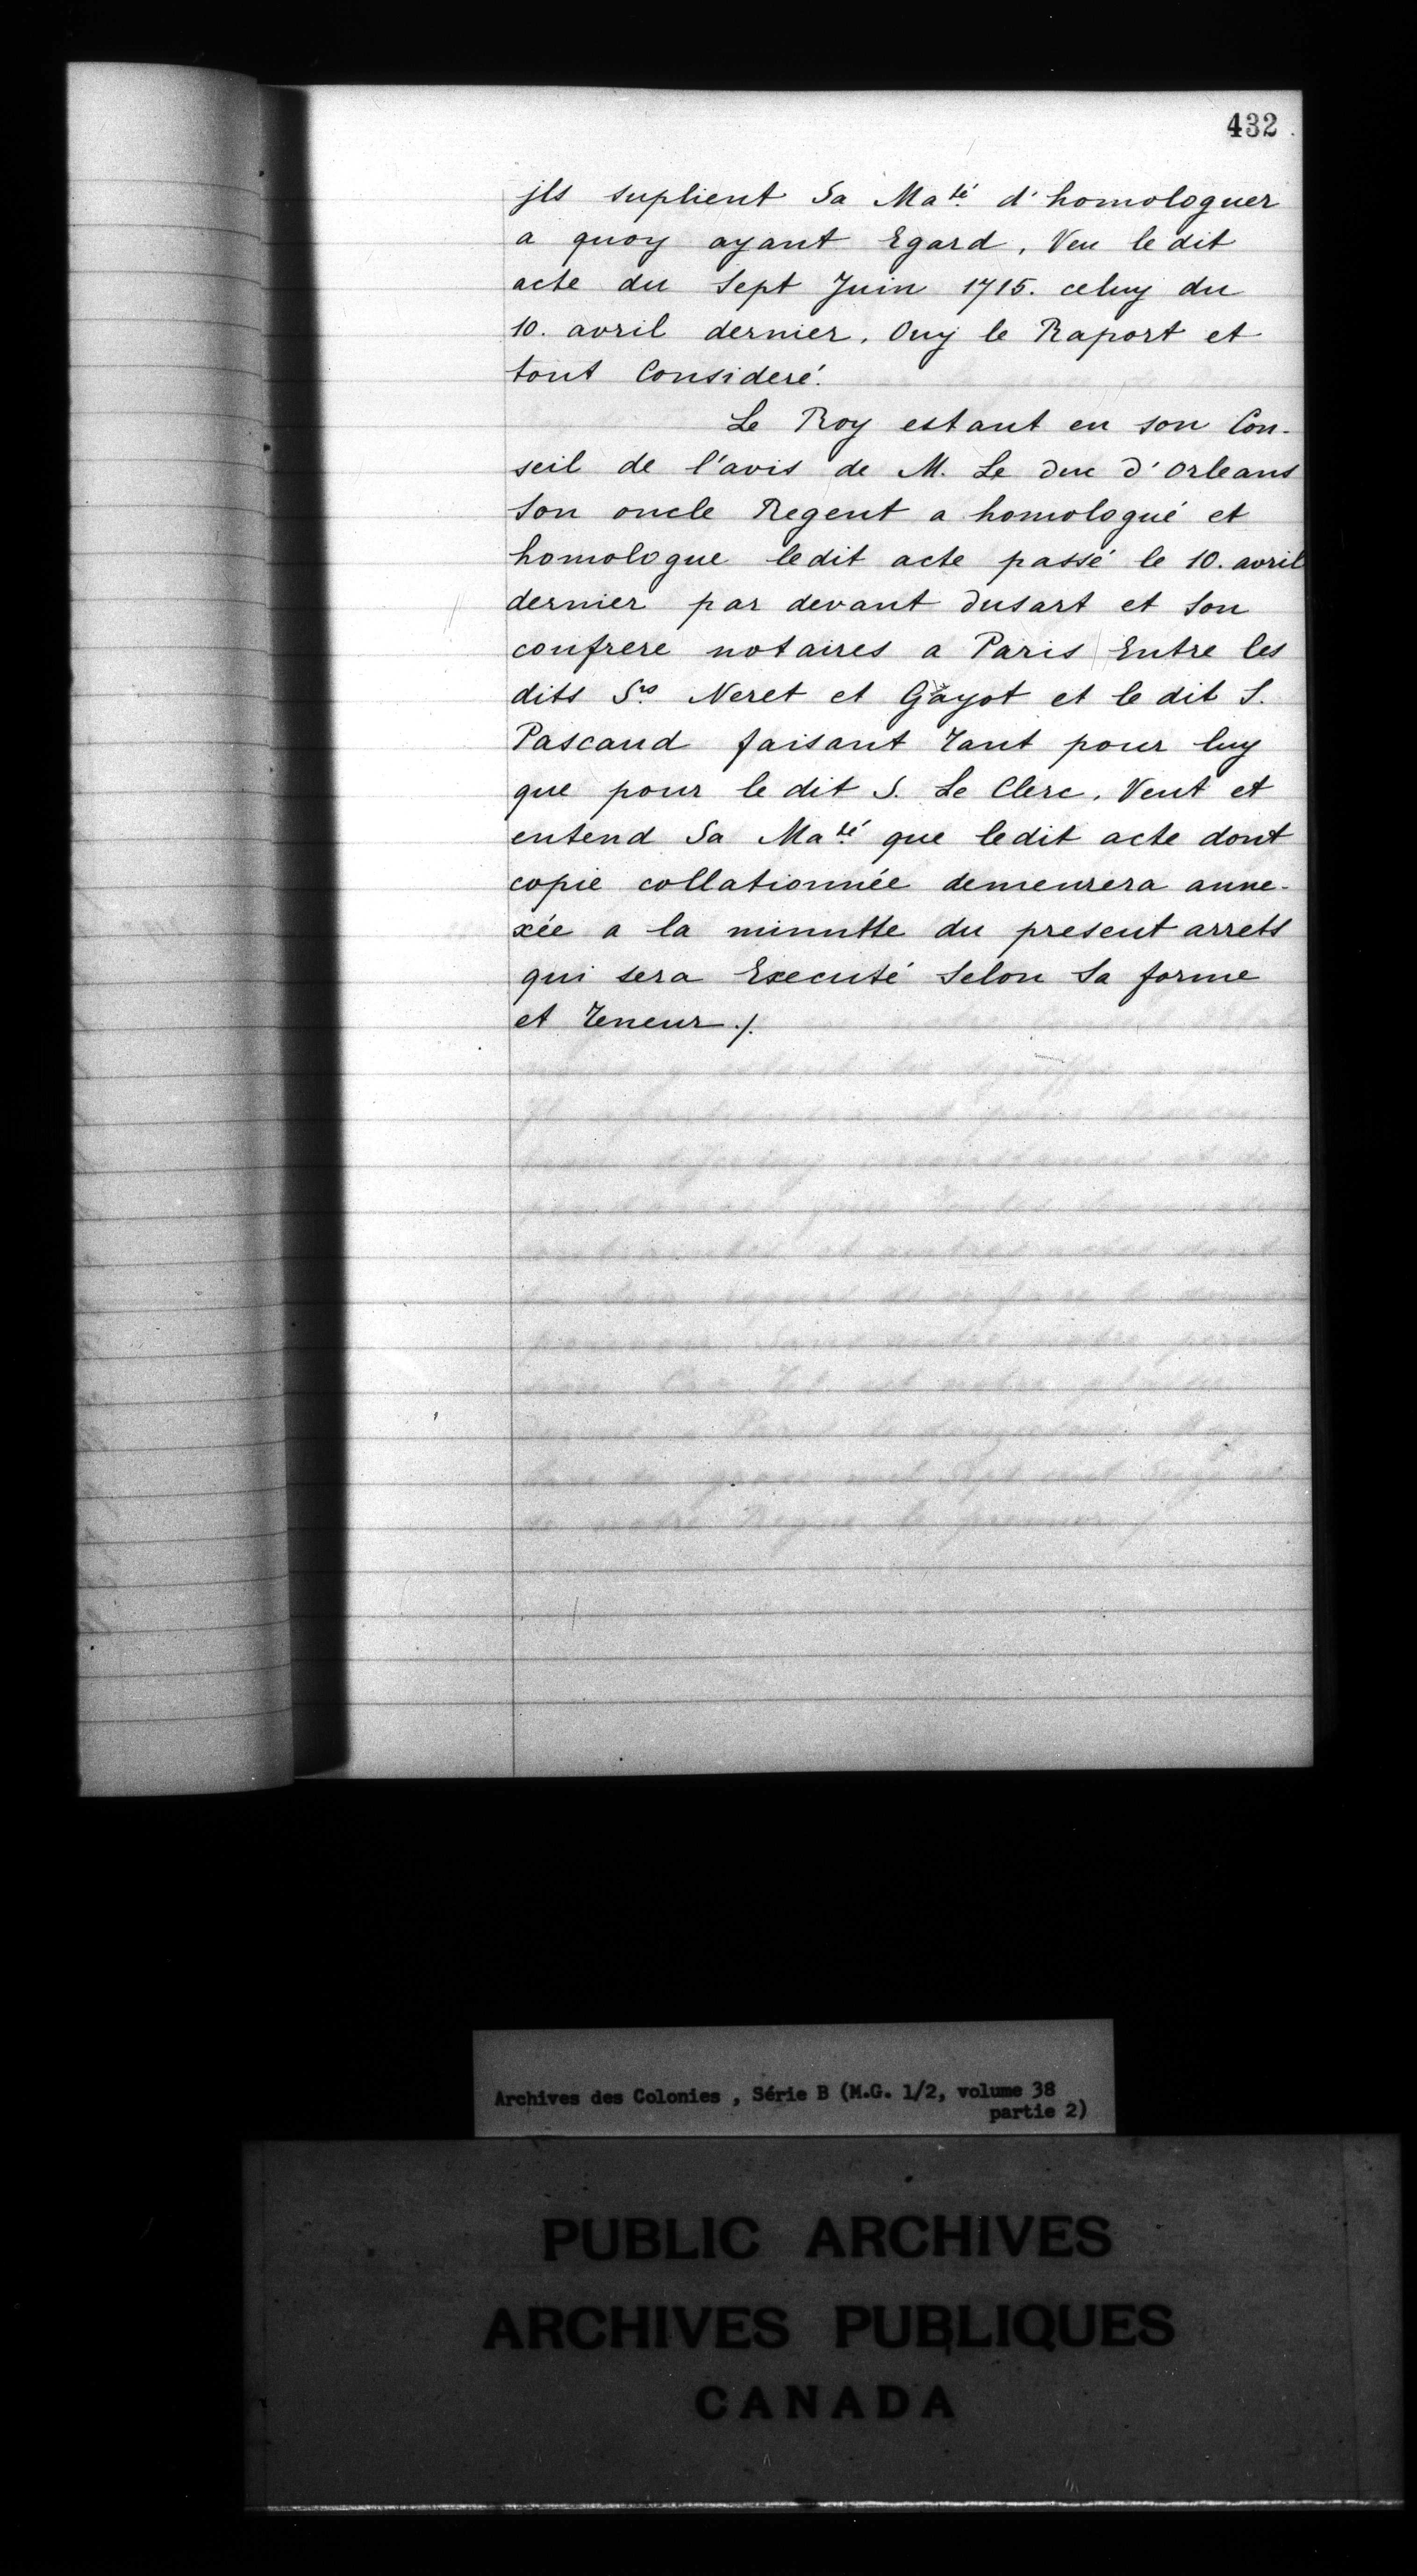 432
jls suplient Sa Ma.té d'homologuer
a quoy ayant Egard, Veu le dit
acte du Sept Juin 1715. celuy du
10. avril dernier, Ouy le Raport et
tout Consideré.
Le Roy estant en son Con-
seil de l'avis de M. Le Duc d'Orleans
Son oncle Regent a homologué et
homologue ledit acte passé le 10. avril
dernier par devant Dusart et Son
confrere notaires a Paris Entre les
dits S.rs Neret et Gayot et le dit S.
Pascaud faisant Tant pour luy
que pour le dit S. Le Clerc, Veut et
entend Sa Ma.té que ledit acte dont
copie collationnée demeurera anne-
xée a la minutte du present arrets
qui sera Executé Selon Sa forme
et Teneur ./.
Archives des Colonies , Série B (M.G. 1/2, volume 38
partie 2)
PUBLIC ARCHIVES
ARCHIVES PUBLIQUES
CANADA